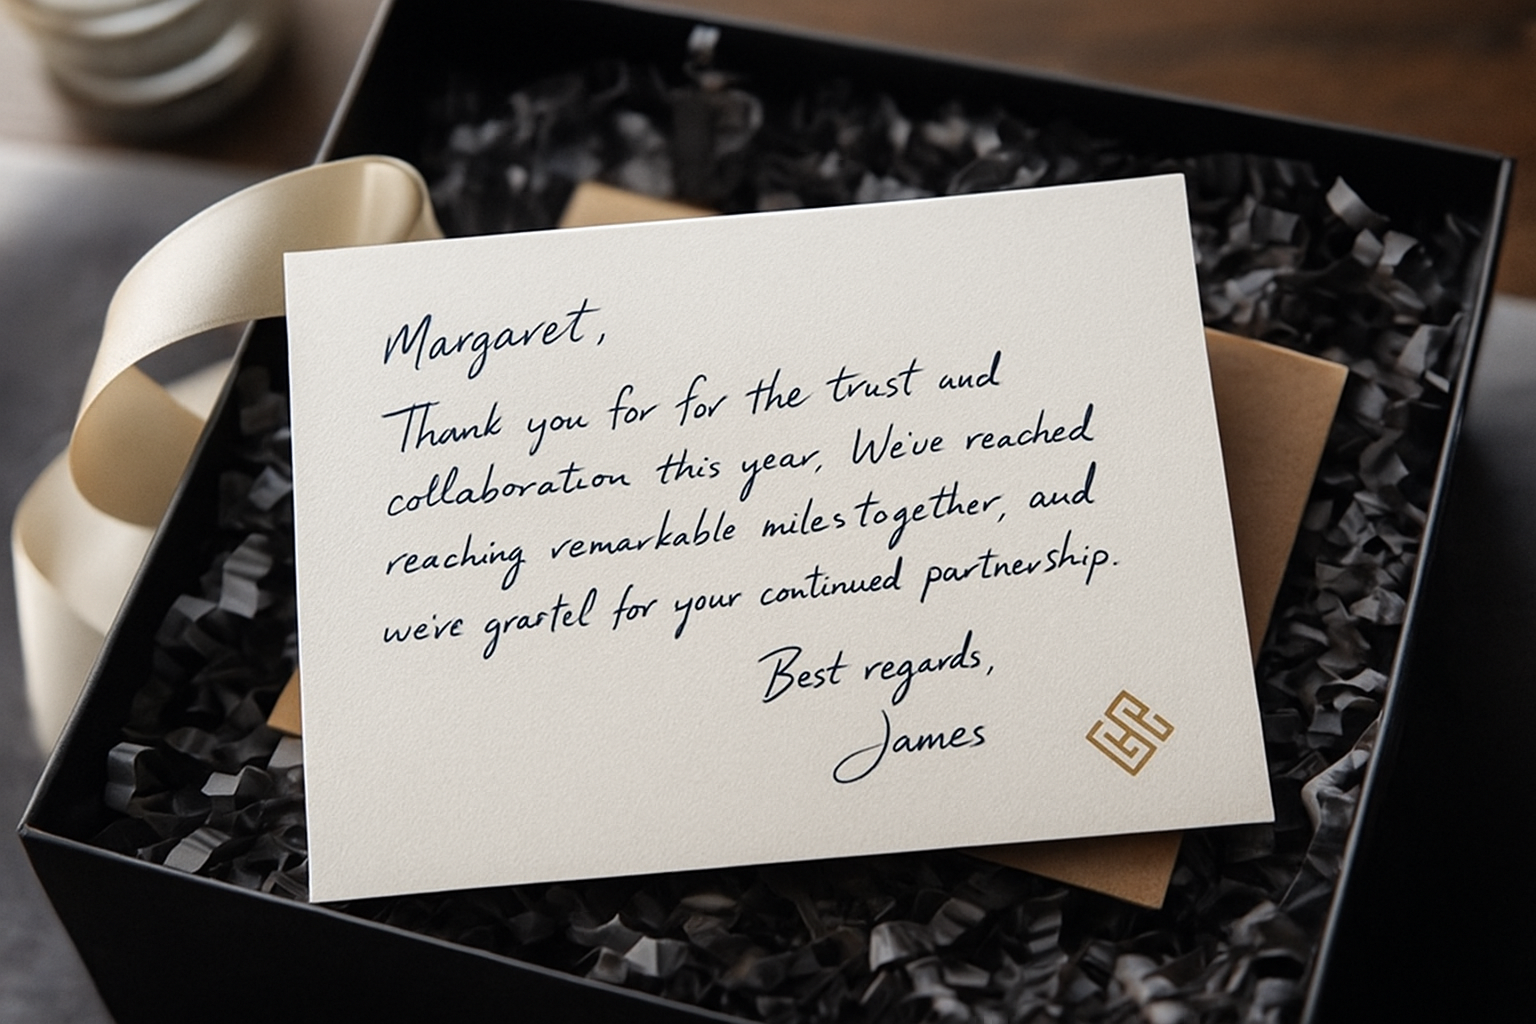 Margaret,
Thank you for for the trust and
collaboration this year, We've reached
reaching remarkable miles together, and
we've grartel for your continued partnership.
Best regards,
James